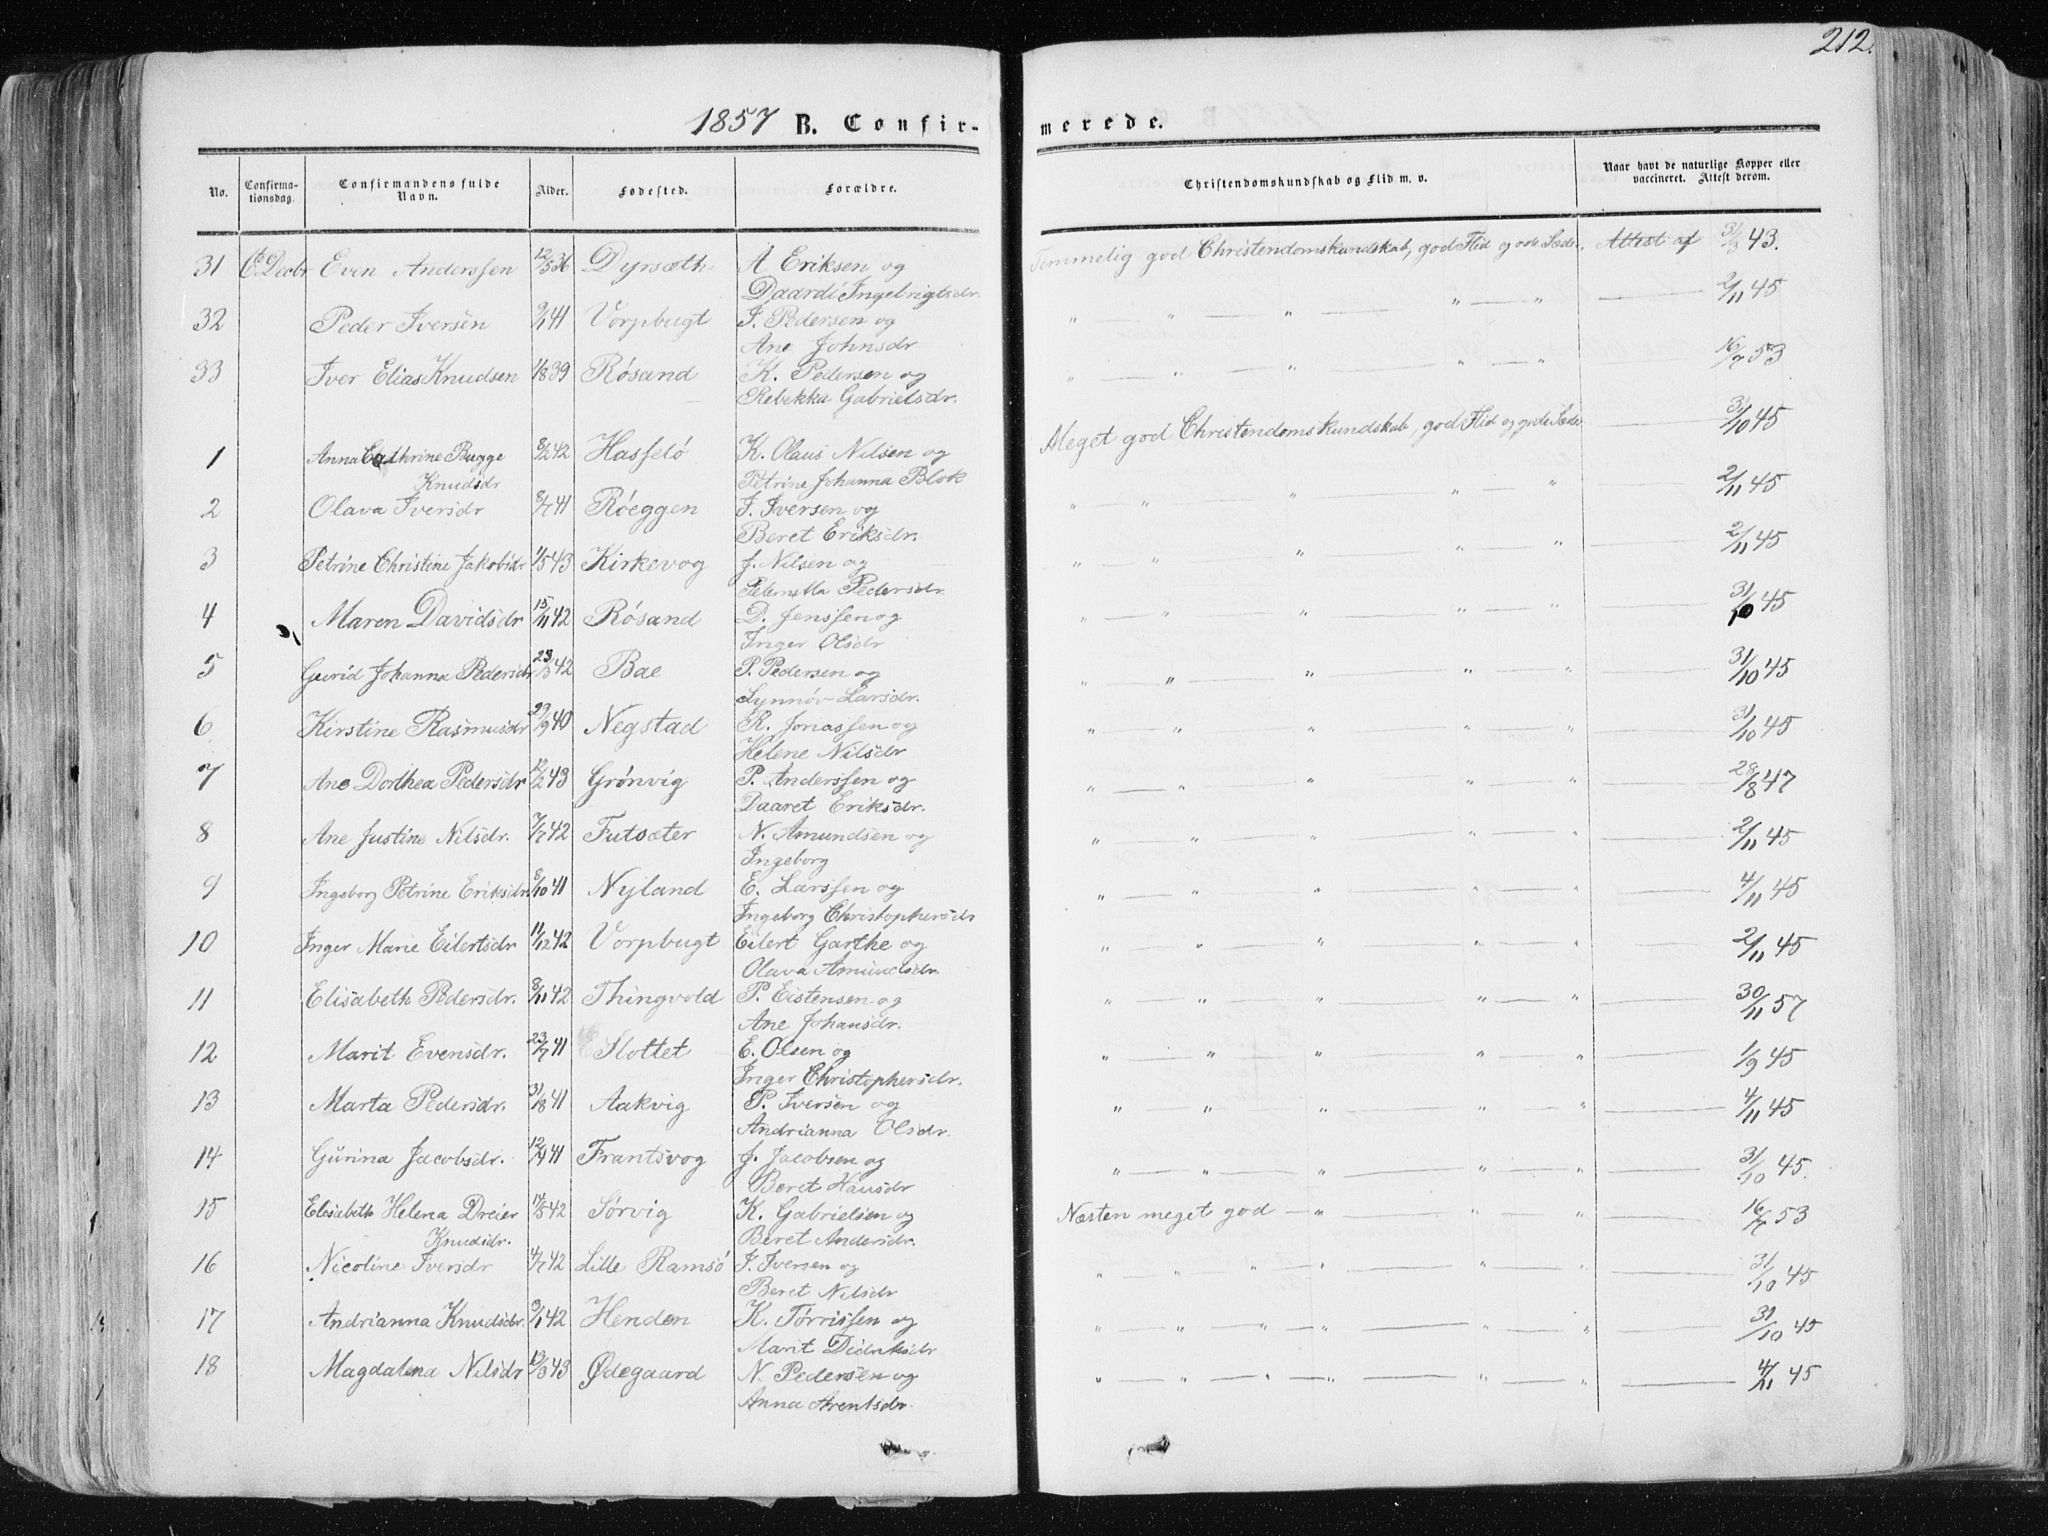 212.
1857 B. Confir- merede.
No. Confirma-tionsdag. Confirmandens fulde Navn. Alder. Fødested. Forældre. Christendomskundskab og Flid m. v. Naar havt de naturlige Kopper eller vaccineret. Attest derom.
31 6 Decbr Even Anderssen 12/5 36 Dyrsæth A Eriksen og Temmelig god Christendomskundskab, god Flid gode Sæder. Attest af 31/3 43.
Daardi Ingebrigtsdr.
32 Peder Iversen 9/1 41 Vorpbugt I. Pedersen og " — " — " — " — " — 2/11 45
Ane Johnsdr
33 Iver Elias Knudsen 1/8 39 Røsand K. Pedersen og " — " — " — " — " — 16/7 53
Rebekka Gabrielsdr.
1 Anna Cathrine Bugge 8/2 42 Hasfelø K. Olaus Nilsen og Meget god Christendomskundskab, god Flid og gode Sæder — 31/10 45
Knudsdr Petrine Johanna Blok
2 Olava Iversdr 8/7 41 Røeggen I. Iversen og " — " — " — " — " — 2/11 45
Beret Eriksdr.
3 Petrine Christine Jakobsdr 1/5 43 Kirkevog J. Nilsen og " — " — " — " — " — 2/11 45
Peternella Pedersdr.
4 Maren Davidsdr 15/11 42 Røsand D. Jenssen og " — " — " — " — " — 31/10 45
Inger Olsdr
5 Gurid Johanna Pedersdr 23/5 42 Bae P. Pedersen og " — " — " — " — " — 31/10 45
Synnøv Larsdr.
6 Kirstine Rasmusdr 29/9 40 Negstad R. Jonassen og " — " — " — " — " — 31/10 45
Helene Nilsdr
7 Ane Dorthea Pedersdr 12/2 43 Grønvig P. Anderssen og " — " — " — " — " — 28/8 47
Daaret Eriksdr.
8 Ane Justine Nilsdr. 7/7 42 Futsæter N. Amundsen og " — " — " — " — " — 2/11 45
Ingeborg
9 Ingeborg Petrine Eriksdr. 8/10 41 Nyland E. Larssen og " — " — " — " — " — 4/11 45
Ingeborg Christophersdr
10 Inger Marie Eilertsdr 11/12 42 Vorpbugt Eilert Garthe og " — " — " — " — " — 2/11 45
Olava Amundsdr.
11 Elisabeth Pedersdr. 8/11 42 Thingvold P. Eistensen og " — " — " — " — " — 30/11 57
Ane Johansdr.
12 Marit Evensdr. 23/7 41 Slottet E. Olsen og " — " — " — " — " — 1/9 45
Inger Christophersdr.
13 Marta Pedersdr. 31/8 41 Aakvig P. Iversen og " — " — " — " — " — 4/11 45
Andrianna Olsdr.
14 Gurina Jacobsdr. 12/4 41 Frantsvog J. Jacobsen og " — " — " — " — " — 31/10 45.
Beret Hansdr
15 Elisabeth Helena Dreier 14/5 42 Sørvig K. Gabrielsen og Næsten meget god — " — " — " — 16/7 53
Knudsdr. Beret Andersdr.
16 Nicoline Iversdr 4/7 42 Lille Ramsø I. Iversen og " — " — " — " — " — " — 31/10 45
Beret Nilsdr
17 Andrianna Knudsdr. 3/1 42 Henden K. Tørrissen og " — " — " — " — " — " — 31/10 45
Marit Didriksdr
18 Magdalena Nilsdr 13/3 43 Ødegaard N. Pedersen og " — " — " — " — " — " — 4/11 45
Anna Arentsdr.